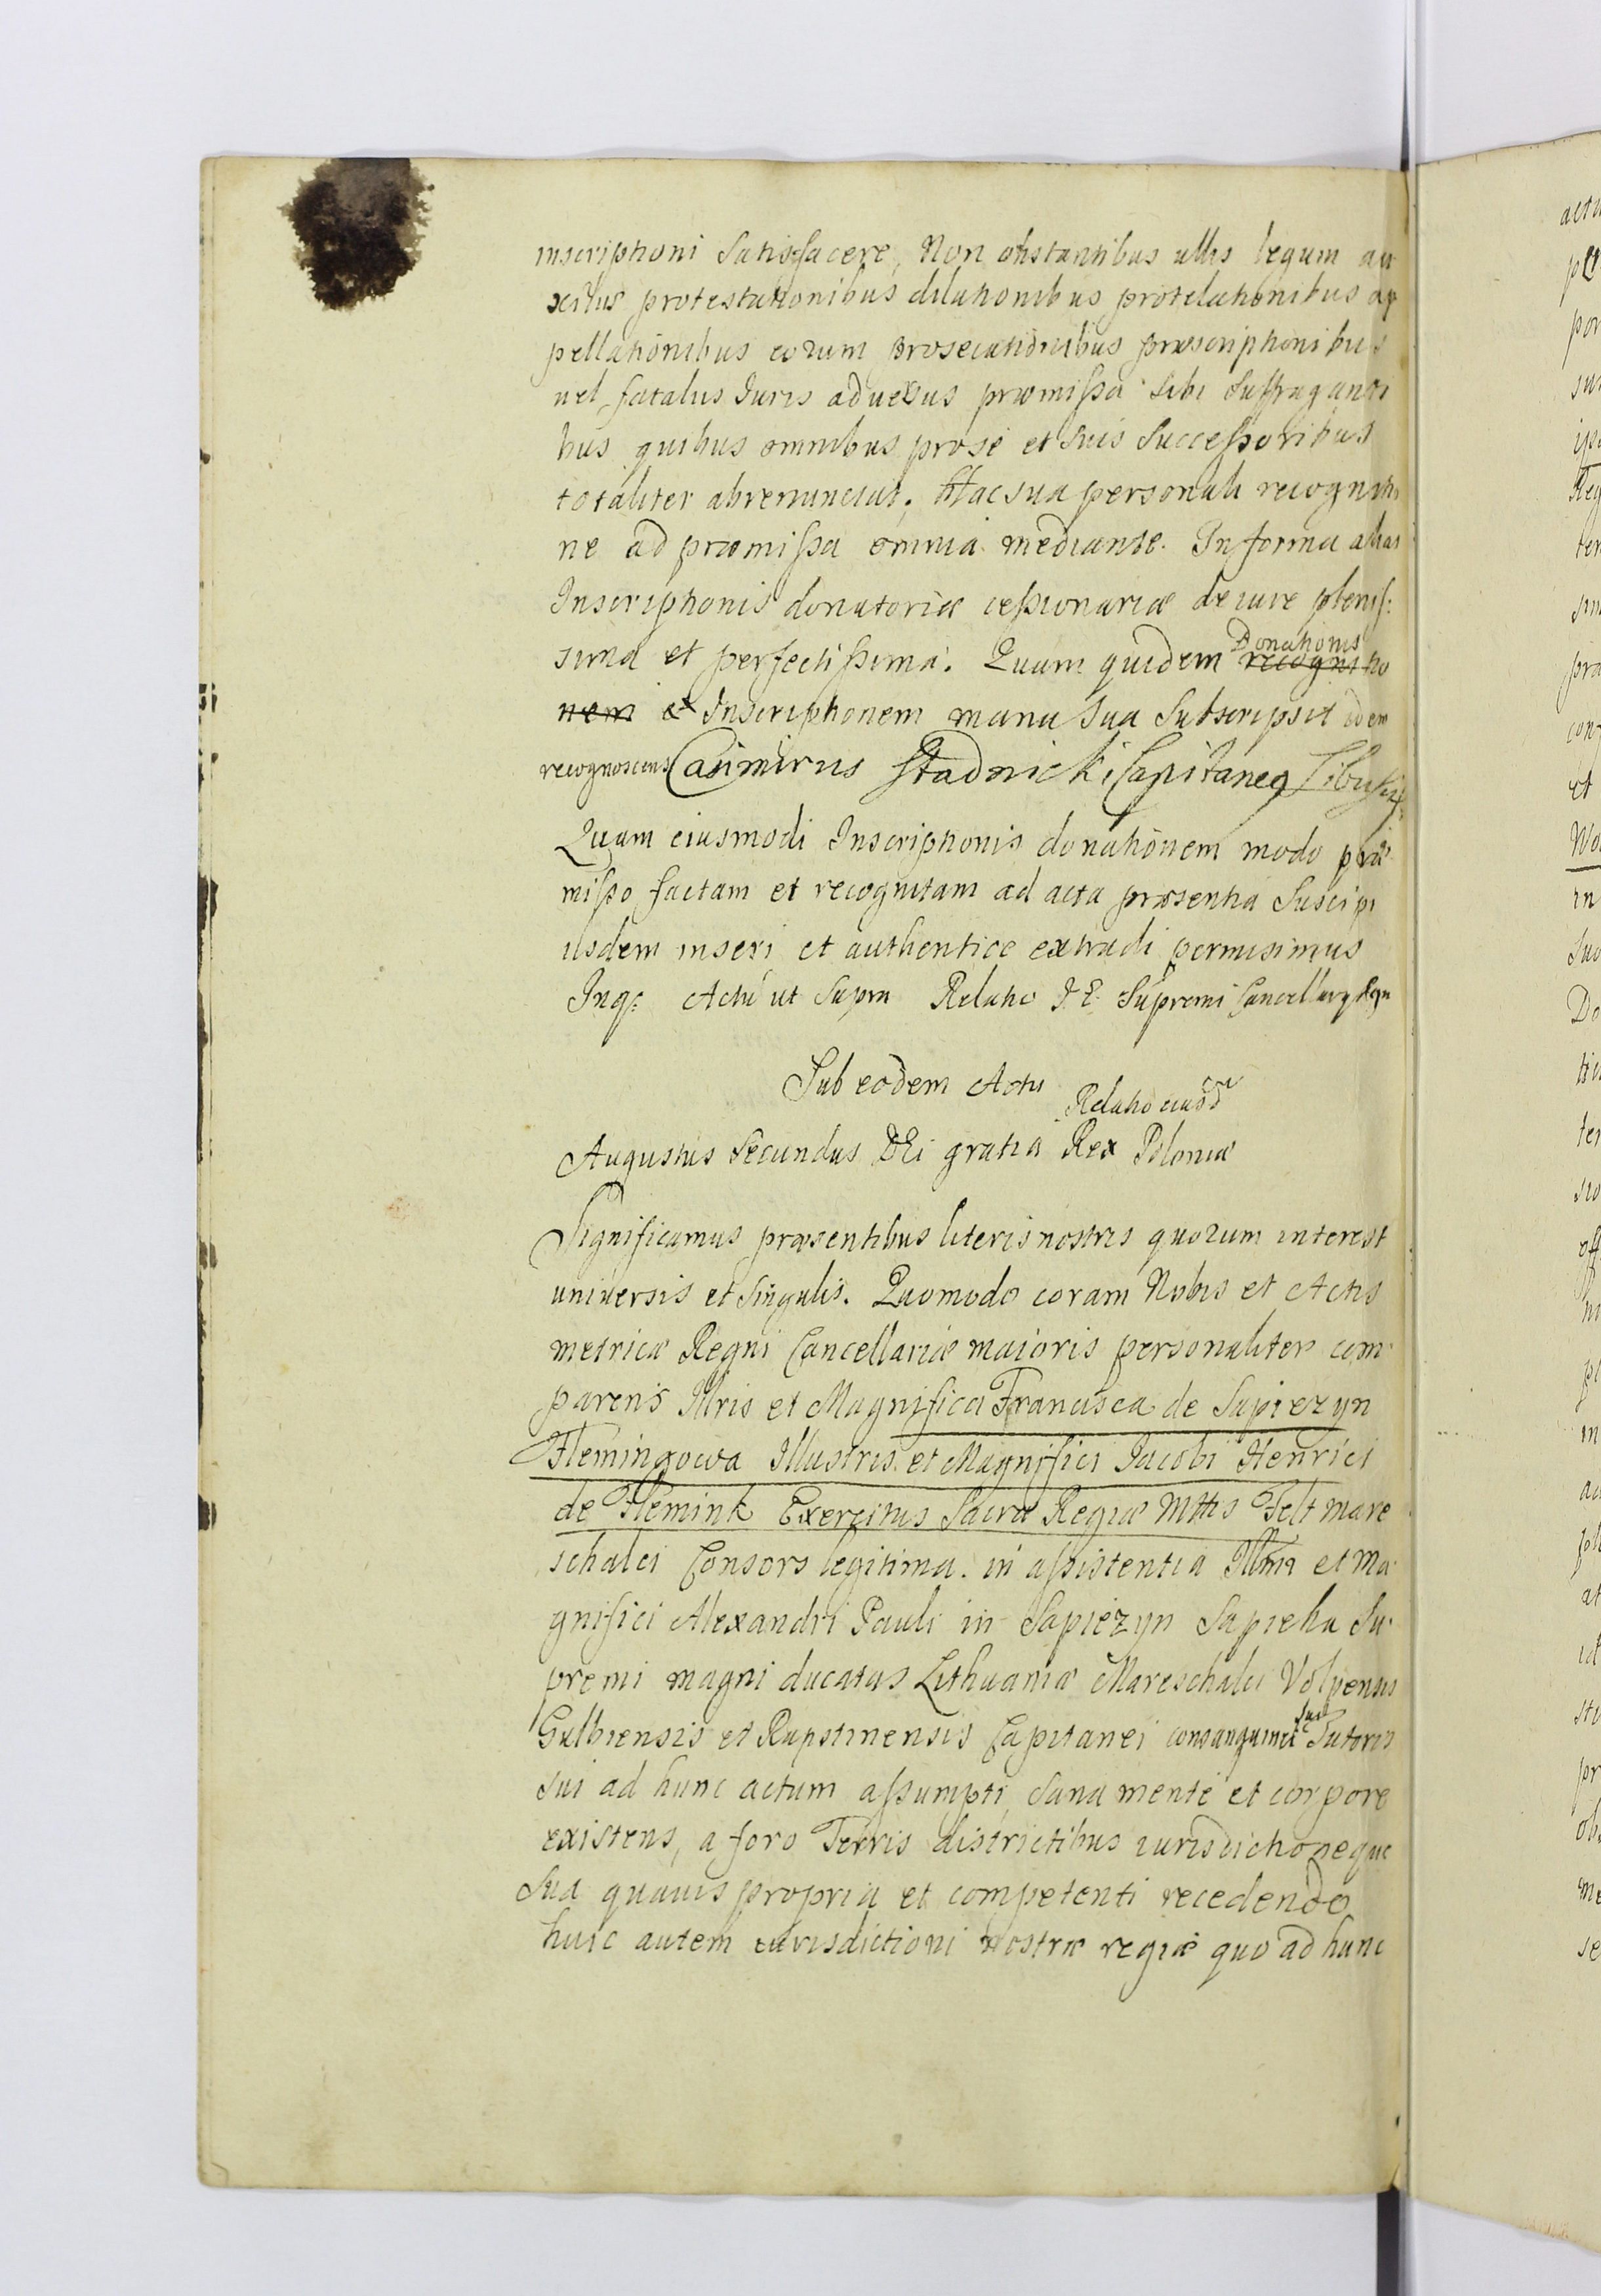 inscriptioni satisfacere, Non obstantibus ullis legum au
xilijs protestationibus dilationibus protelationibus ap
pellationibus eorum prosecutionibus præscriptionibus
uel fatalijs Iuris aduersus præmissa sibi suffraganti
bus quibus omnibus prose et suis successoribus
totaliter abrenunciat. Hac sua personali recognitio
ne ad præmissa omnia mediante. In forma alias
Inscriptionis donatoriæ cessionariæ de iure plenis:
sima et perfectissima. Quam quidem recognitio Donationis
nem et Inscriptionem manu sua subscripsit idem
recognoscens Casimirus Stadnicki Capitaneq
Quam eiusmodi Inscriptionis donationem modo præ
misso factam et recognitam ad acta præsentia suscipi
iisdem inseri et authentice extradi permisimus
Inqs: Actu ut supra Relatio I E. Supremi Cancellarij Regni
Sub eodem Actu
Relatio eiusd
Augustus Secundus DEi gratia Rex Poloniæ
Significamus præsentibus literis nostris quorum interest
universis et singulis. Quomodo coram Nobis et Actis
metricæ Regni Cancellariæ maioris personaliter com
parens Illris et Magnifica Francisca de Sapiezyn
Flemingowa Illustris et Magnifici Iacobi Henrici
de Flemink Exercitus Sacræ Regiæ Mttis Felt mare
schalci Consors legitima. in assistentia Illmi et Ma
gnifici Alexandri Pauli in Sapiezyn Sapieha Su
premi magni ducatus Lithuaniæ Mareschalci Volpensis
Gulbiensis et Rapstinensis Capitanei consanguinei sui Tutoris
sui ad hunc actum assumpti, sana mente et corpore
existens, a foro Terris districtibus iurisdictioneque
sua quauis propria et competenti recedendo
huic autem iurisdictioni nostræ regiæ quo ad hunc